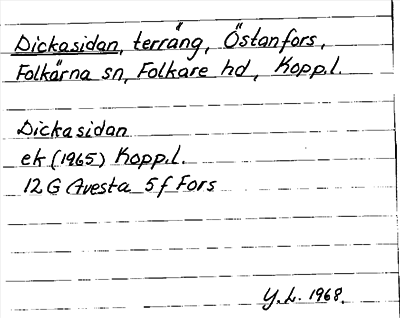 Dickasidan, terräng, Östanfors,
Folkärna sn, Folkare hd, Koppl.
Dickasidan
ek (1965) Koppl.
12 G Avesta 5 f Fors
Y.L. 1968.